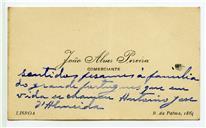 João Alves Pereira
COMERCIANTE
Sentidos pesames á familia
do grande portuguez que em
vida se chamou Antonio José
d'Almeida
LISBOA
R. da Palma, 186